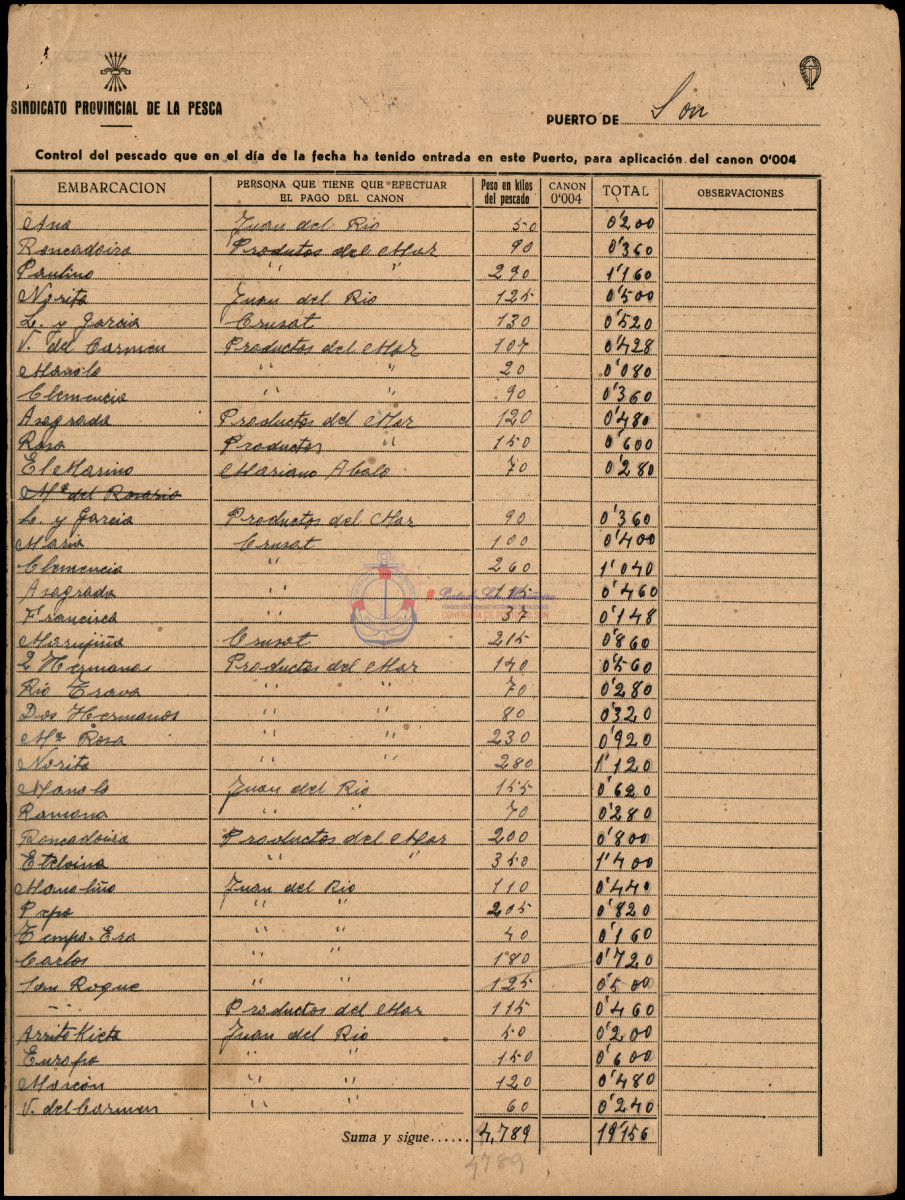 SINDICATO PROVINCIAL DE LA PESCA
PUERTO DE Son
Control del pescado que en el día de la fecha ha tenido entrada en este Puerto, para aplicación del canon 0'004
EMBARCACION PERSONA QUE TIENE QUE EFECTUAR EL PAGO DEL CANON Peso en kilos del pescado CANON 0'004 TOTAL OBSERVACIONES
Ana Juan del Rio 50 0'200
Roncadoira Produtos del Mar 90 0'360
Paulino " " 290 1'160
Norita Juan del Rio 125 0'500
L. y Garcia Crusat 130 0'520
V. del Carmen Productos del Mar 107 0'428
Manolo " " 20 0'080
Clemencia " " 90 0'360
Asagrada Productos del Mar 120 0'480
Rosa Productos " 150 0'600
El Marino Mariano Abalo 70 0'280
Mª del Rosario
L. y Garcia Productos del Mar 90 0'360
Maria Crusat 100 0'400
Clemencia " 260 1'040
Asagrada " 115 0'460
Francisca " 37 0'148
Marupiña Crusat 215 0'860
2 Hermanos Productos del Mar 140 0'560
Rio Trava " " 70 0'280
Dos Hermanos " " 80 0'320
Mª Rosa " " 230 0'920
Norita " " 280 1'120
Manolo Juan del Rio 155 0'620
Ramona " " 70 0'280
Roncadoira Productos del Mar 200 0'800
Etelvina " " 350 1'400
Manoliño Juan del Rio 110 0'440
Pepa " " 205 0'820
Tempo-Era " " 40 0'160
Carlos " " 180 0'720
San Roque " " 125 0'500
-- Productos del Mar 115 0'460
Arrita Kieta Juan del Rio 50 0'200
Europa " " 150 0'600
Marcón " " 120 0'480
V. del Carmen " " 60 0'240
Suma y sigue...... 4,789 19'156
4789